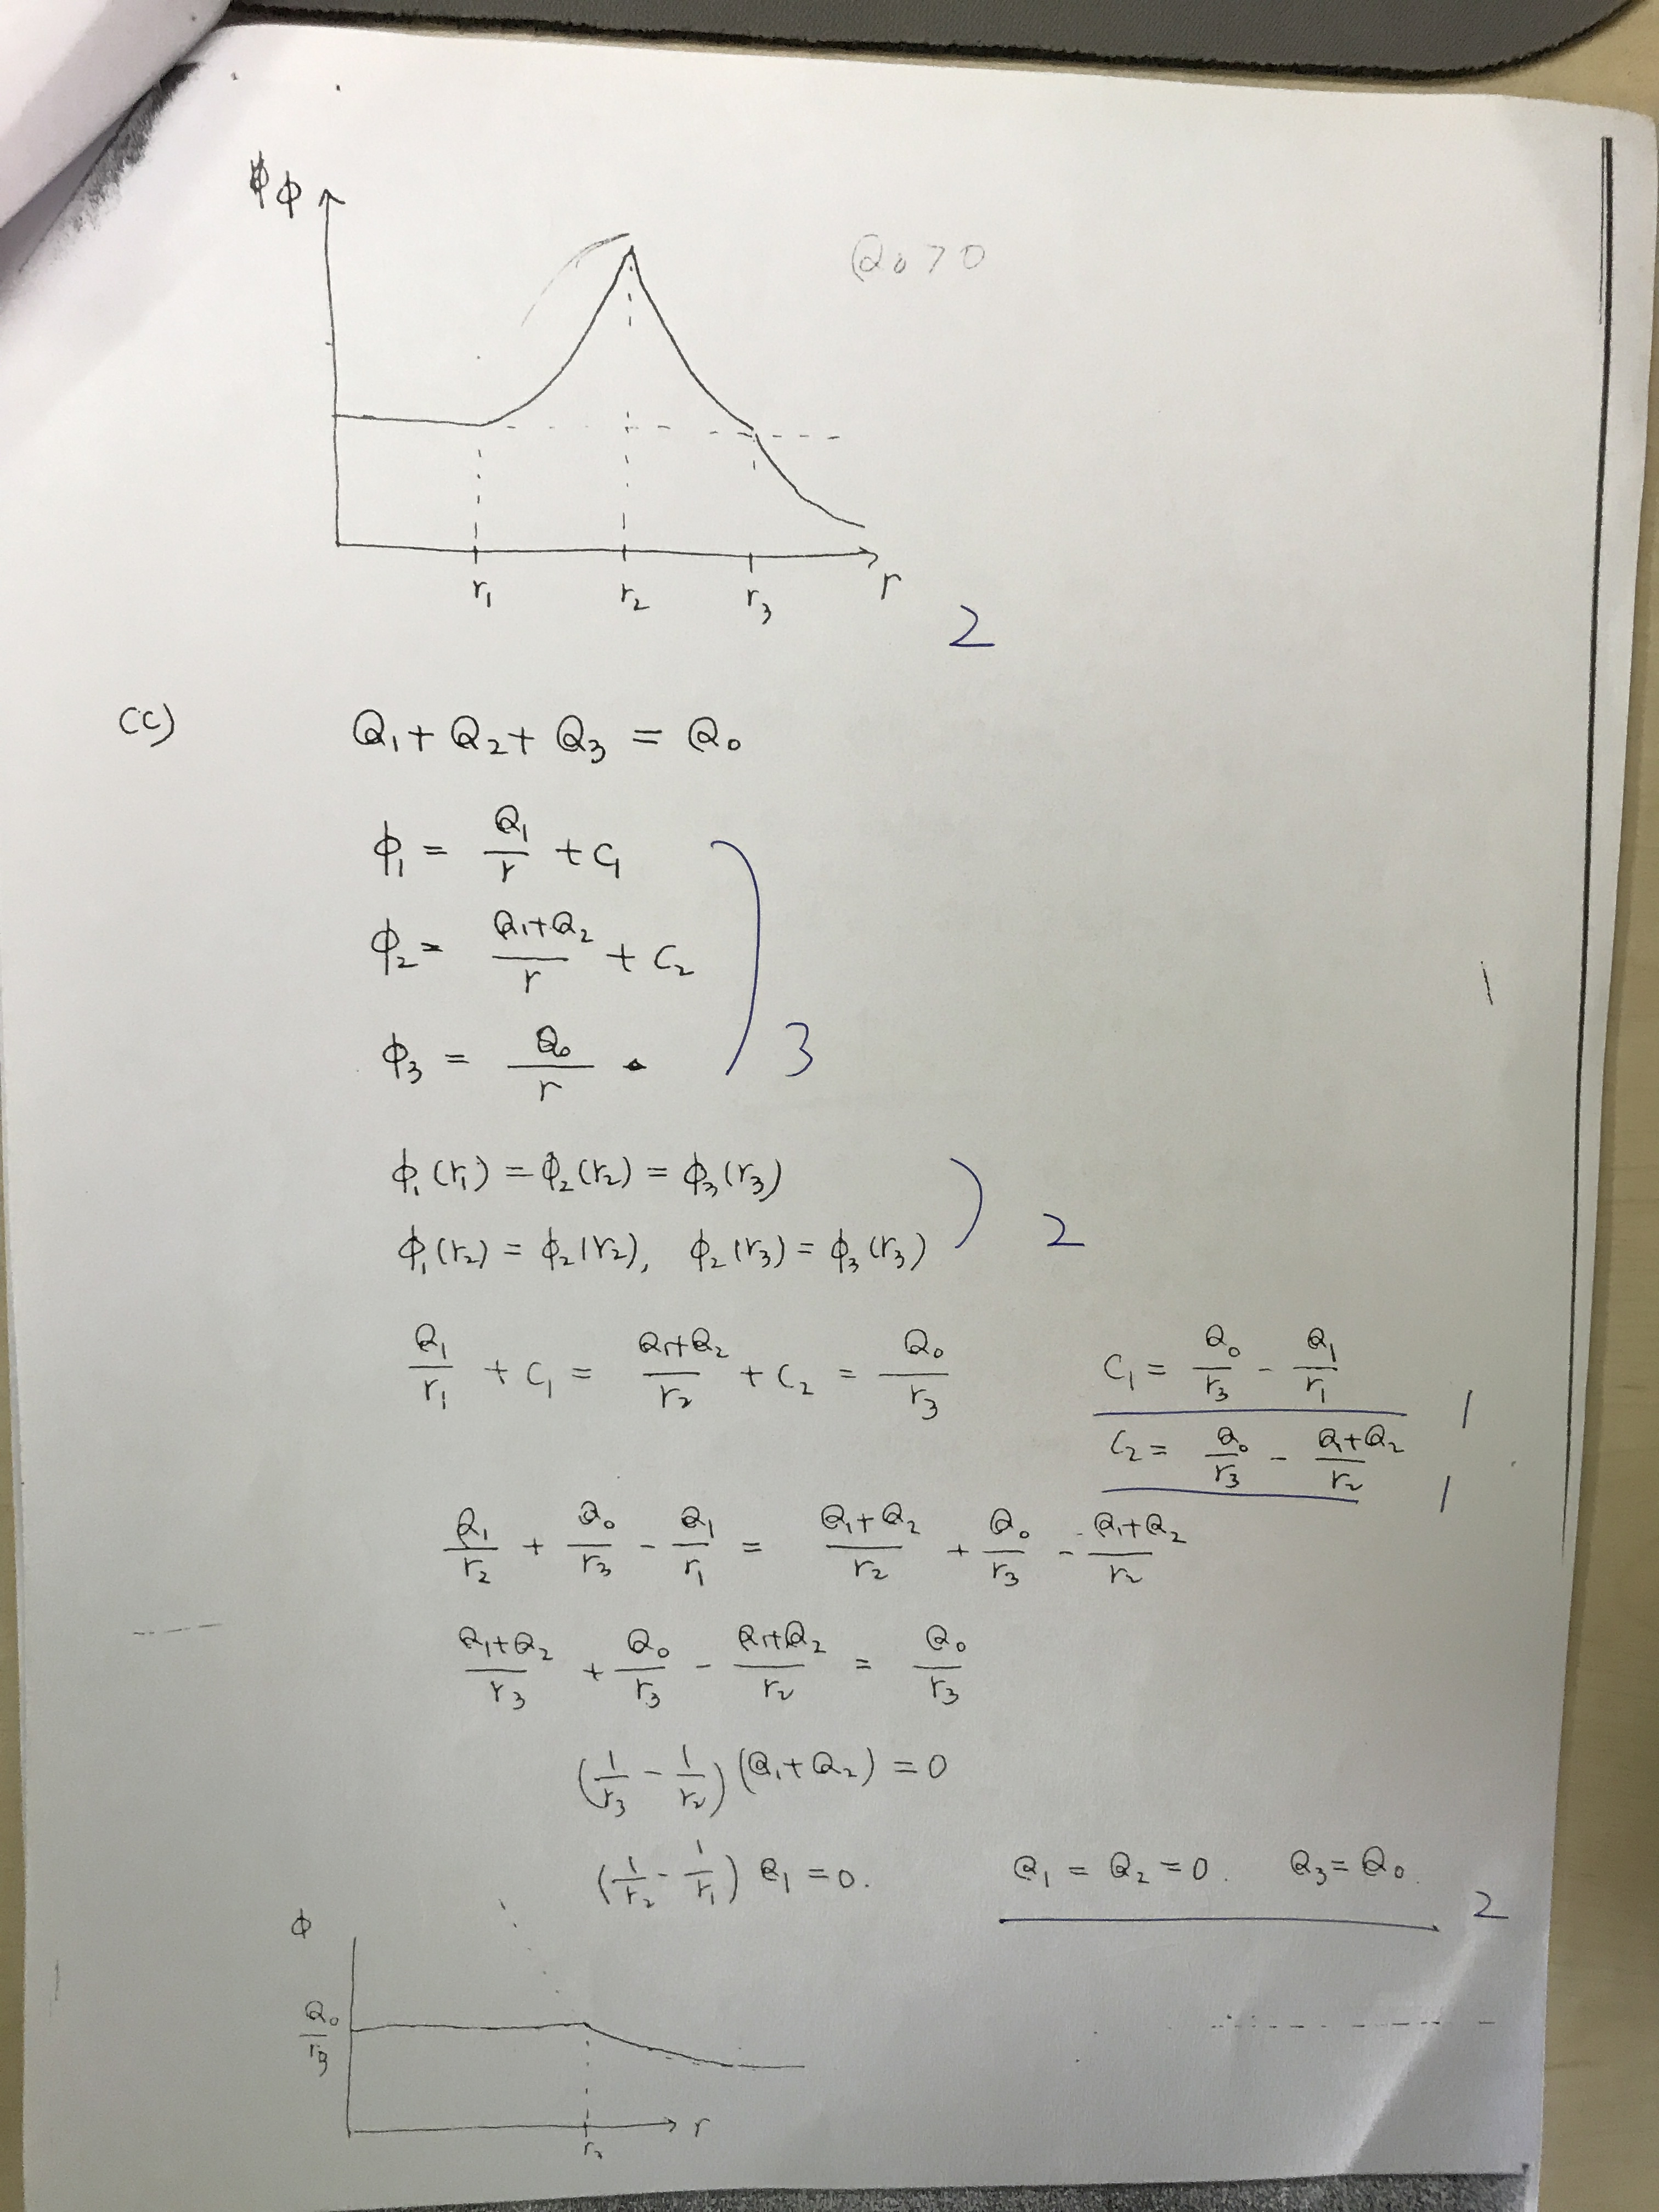 ϕ
Q₀ > 0
r₁ r₂ r₃ r
2
(C) Q₁ + Q₂ + Q₃ = Q₀
ϕ₁ = Q₁/r + C₁
ϕ₂ = (Q₁+Q₂)/r + C₂
ϕ₃ = Q₀/r
3
ϕ₁(r₁) = ϕ₂(r₂) = ϕ₃(r₃)
ϕ₁(r₂) = ϕ₂(r₂), ϕ₂(r₃) = ϕ₃(r₃)
2
Q₁/r₁ + C₁ = (Q₁+Q₂)/r₂ + C₂ = Q₀/r₃
C₁ = Q₀/r₃ - Q₁/r₁ 1
C₂ = Q₀/r₃ - (Q₁+Q₂)/r₂ 1
Q₁/r₂ + Q₀/r₃ - Q₁/r₁ = (Q₁+Q₂)/r₂ + Q₀/r₃ - (Q₁+Q₂)/r₂
(Q₁+Q₂)/r₃ + Q₀/r₃ - (Q₁+Q₂)/r₂ = Q₀/r₃
(1/r₃ - 1/r₂)(Q₁+Q₂) = 0
(1/r₂ - 1/r₁) Q₁ = 0. Q₁ = Q₂ = 0. Q₃ = Q₀.
2
ϕ
Q₀/r₃
r